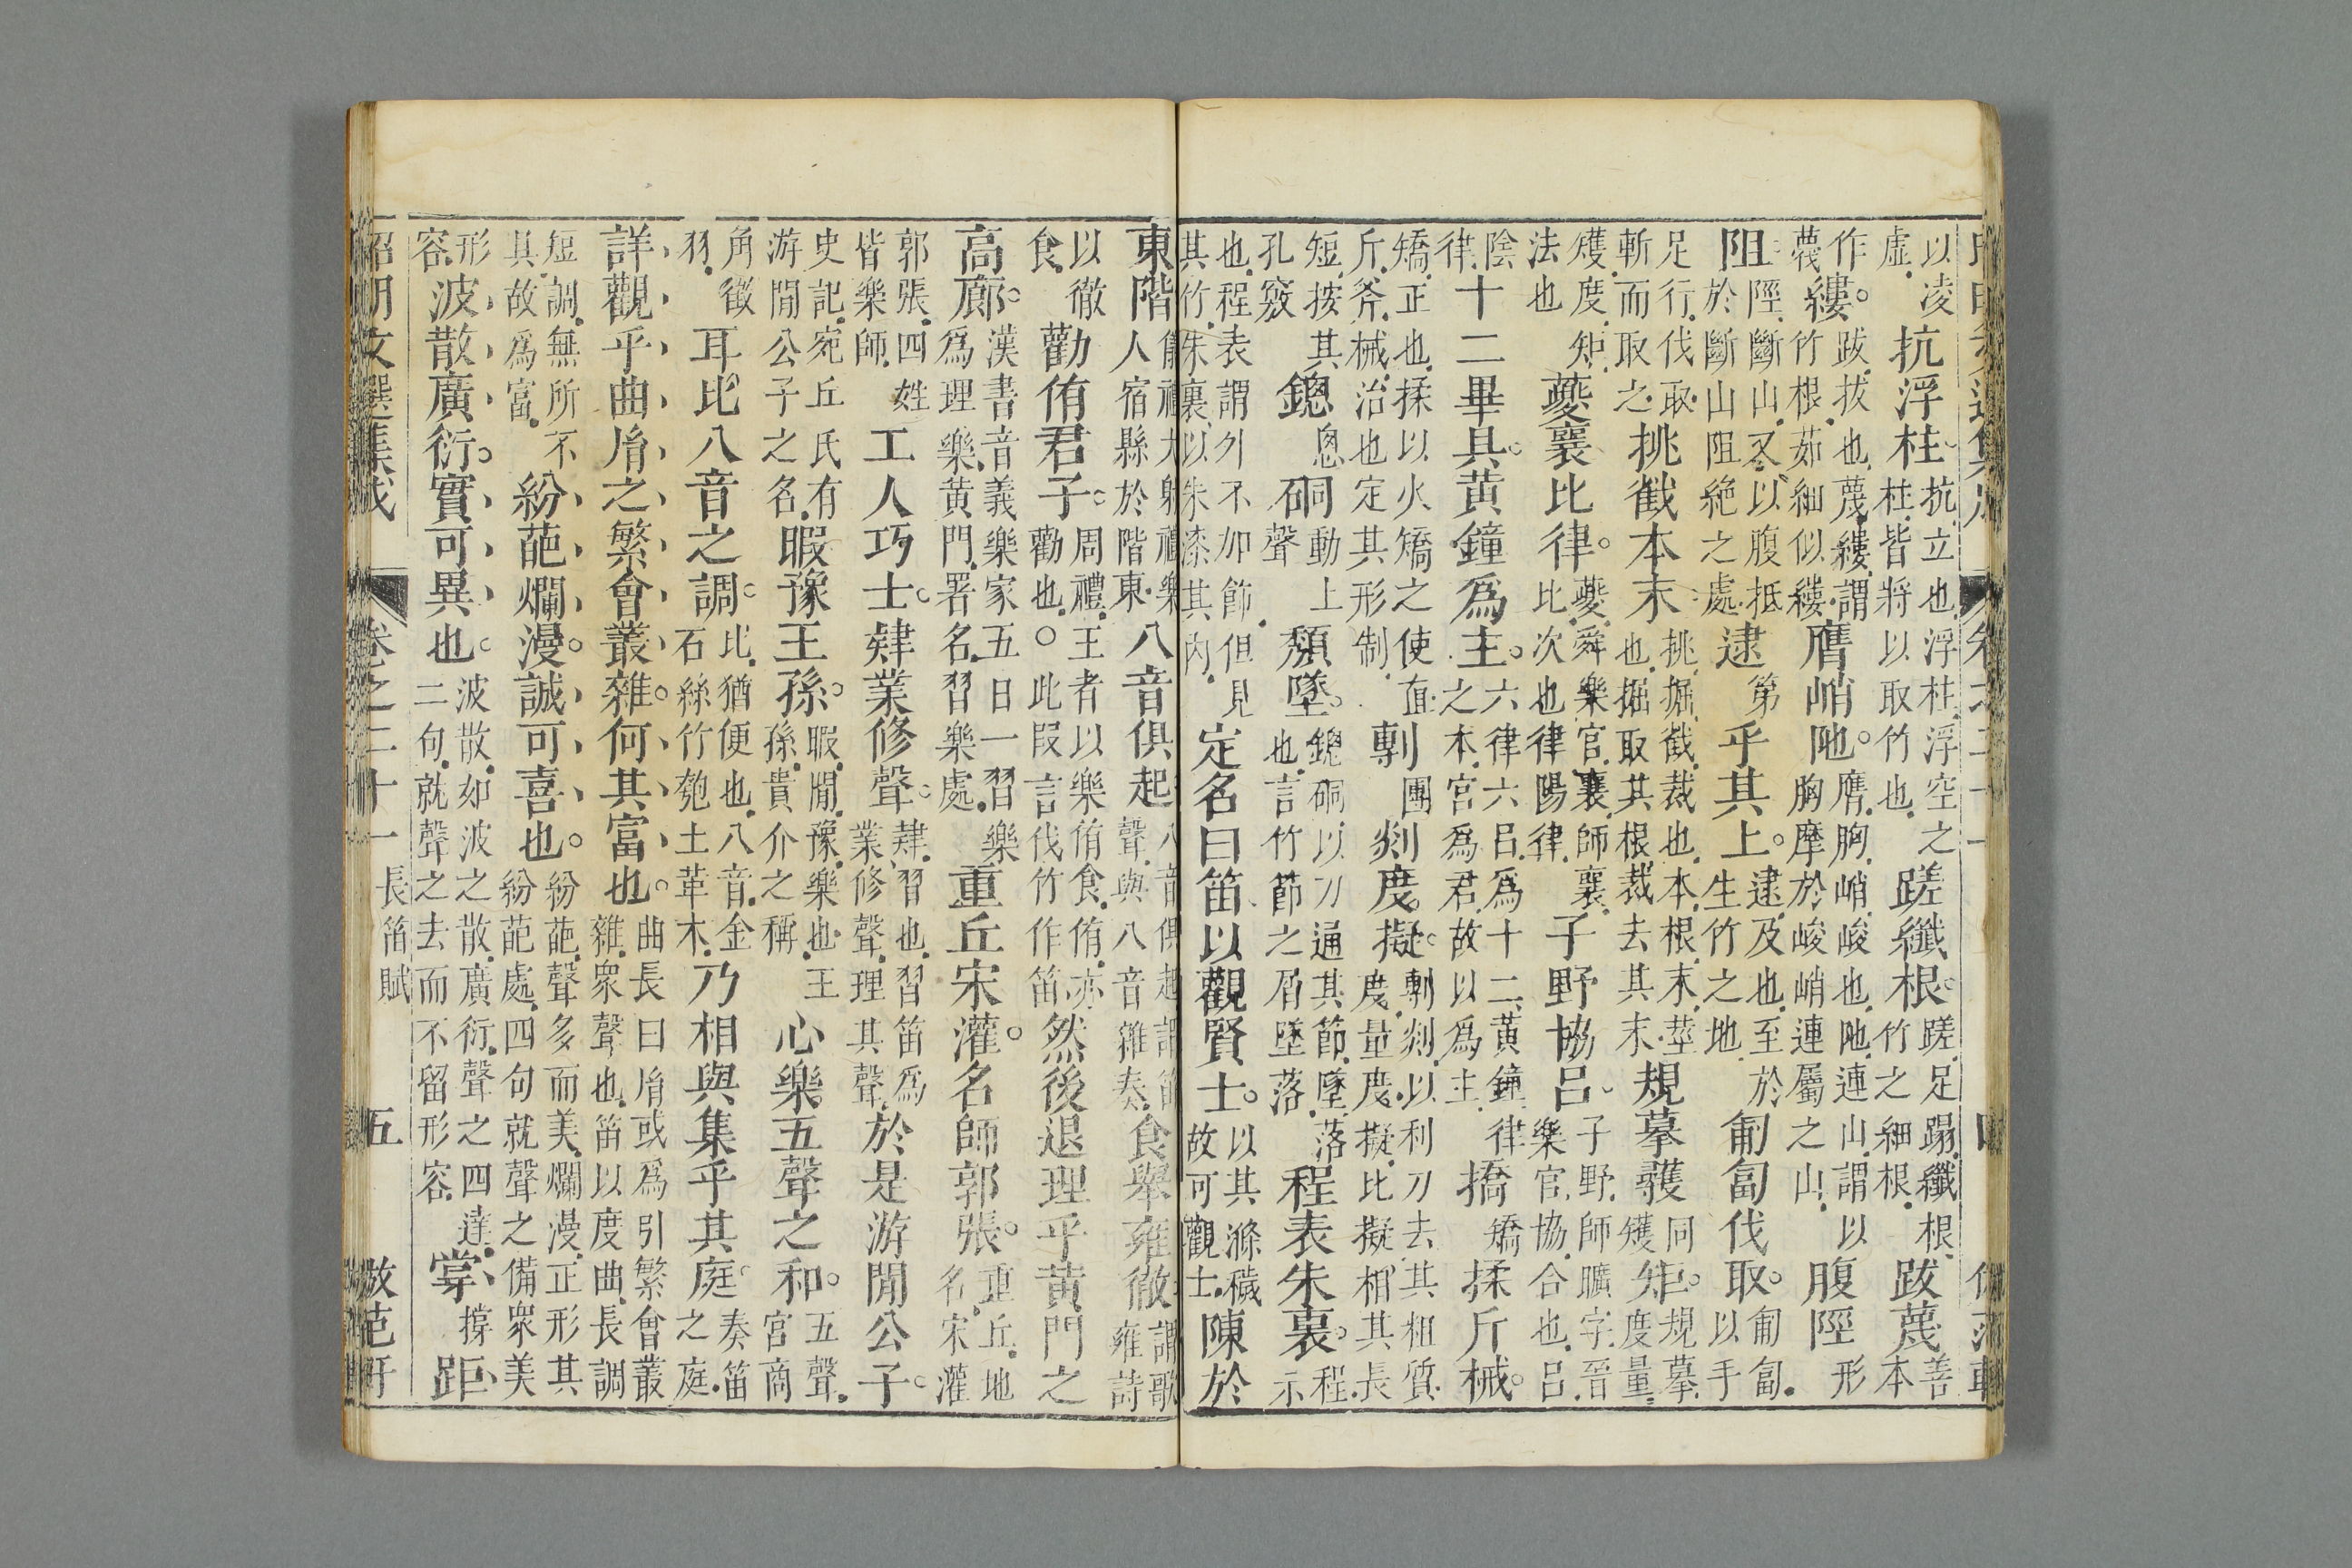 以凌虛抗浮柱抗立也浮柱浮空之柱皆將以取竹也蹉纖根蹉足蹋纖根竹之細根跋蔑善本
作蔑縷跋拔也蔑縷謂竹根茹細似縷膺峭阤膺胸峭峻也阤連山謂以胸摩於峻峭連屬之山腹陘形
阻陘斷山又以腹抵於斷山阻絕之處逮第乎其上逮及也至於生竹之地匍匐伐取匍匐以手
足行伐取斬而取之挑截本末挑掘截裁也本根末莖也掘取其根裁去其末規摹彠同矱矩規摹度量
矱度矩法也夔襄比律夔舜樂官襄師襄比次也律陽律子野協呂子野師曠字晉樂官協合也呂
陰律十二畢具黃鐘為主六律六呂為十二黃鐘律之本宮為君故以為主撟矯揉斤械
矯正也揉以火矯之使直斤斧械治也定其形制剸團剡度擬剸剡以利刀去其粗質度量度擬比擬相其長
短按其孔竅鏓悤硐動上聲隤墜鏓硐以刀通其節墜落也言竹節之屑墜落程表朱裏程示
也程表謂外不加節但見其竹朱裏以朱漆其內定名曰笛以觀賢士以其滌穢故可觀士陳於
東階儀禮大射禮樂人宿縣於階東八音俱起八音俱起謂笛聲與八音雜奏食舉雍徹謂歌雍詩
以徹食勸侑君子周禮王者以樂侑食侑亦勸也○此叚言伐竹作笛然後退理乎黃門之
高廊漢書音義樂家五日一習樂為理樂黃門署名習樂處重丘宋灌名師郭張重丘地名宋灌
郭張四姓皆樂師工人巧士肄業修聲肄習也習笛為業修聲理其聲於是游閒公子
史記宛丘氏有游閒公子之名暇豫王孫暇閒豫樂也王孫貴介之稱心樂五聲之和五聲宮商
角徵羽耳比八音之調比猶便也八音金石絲竹匏土革木乃相與集乎其庭奏笛之庭
詳觀乎曲㣧之繁會叢雜何其富也曲長曰㣧或為引繁會叢雜眾聲也笛以度曲長調
短調無所不具故為富紛葩爛漫誠可喜也紛葩聲多而美爛漫正形其紛葩處四句就聲之備眾美
形容波散廣衍實可異也波散如波之散廣衍聲之四達二句就聲之去而不留形容掌撐距
昭明文選集成 卷之二十一 長笛賦 五